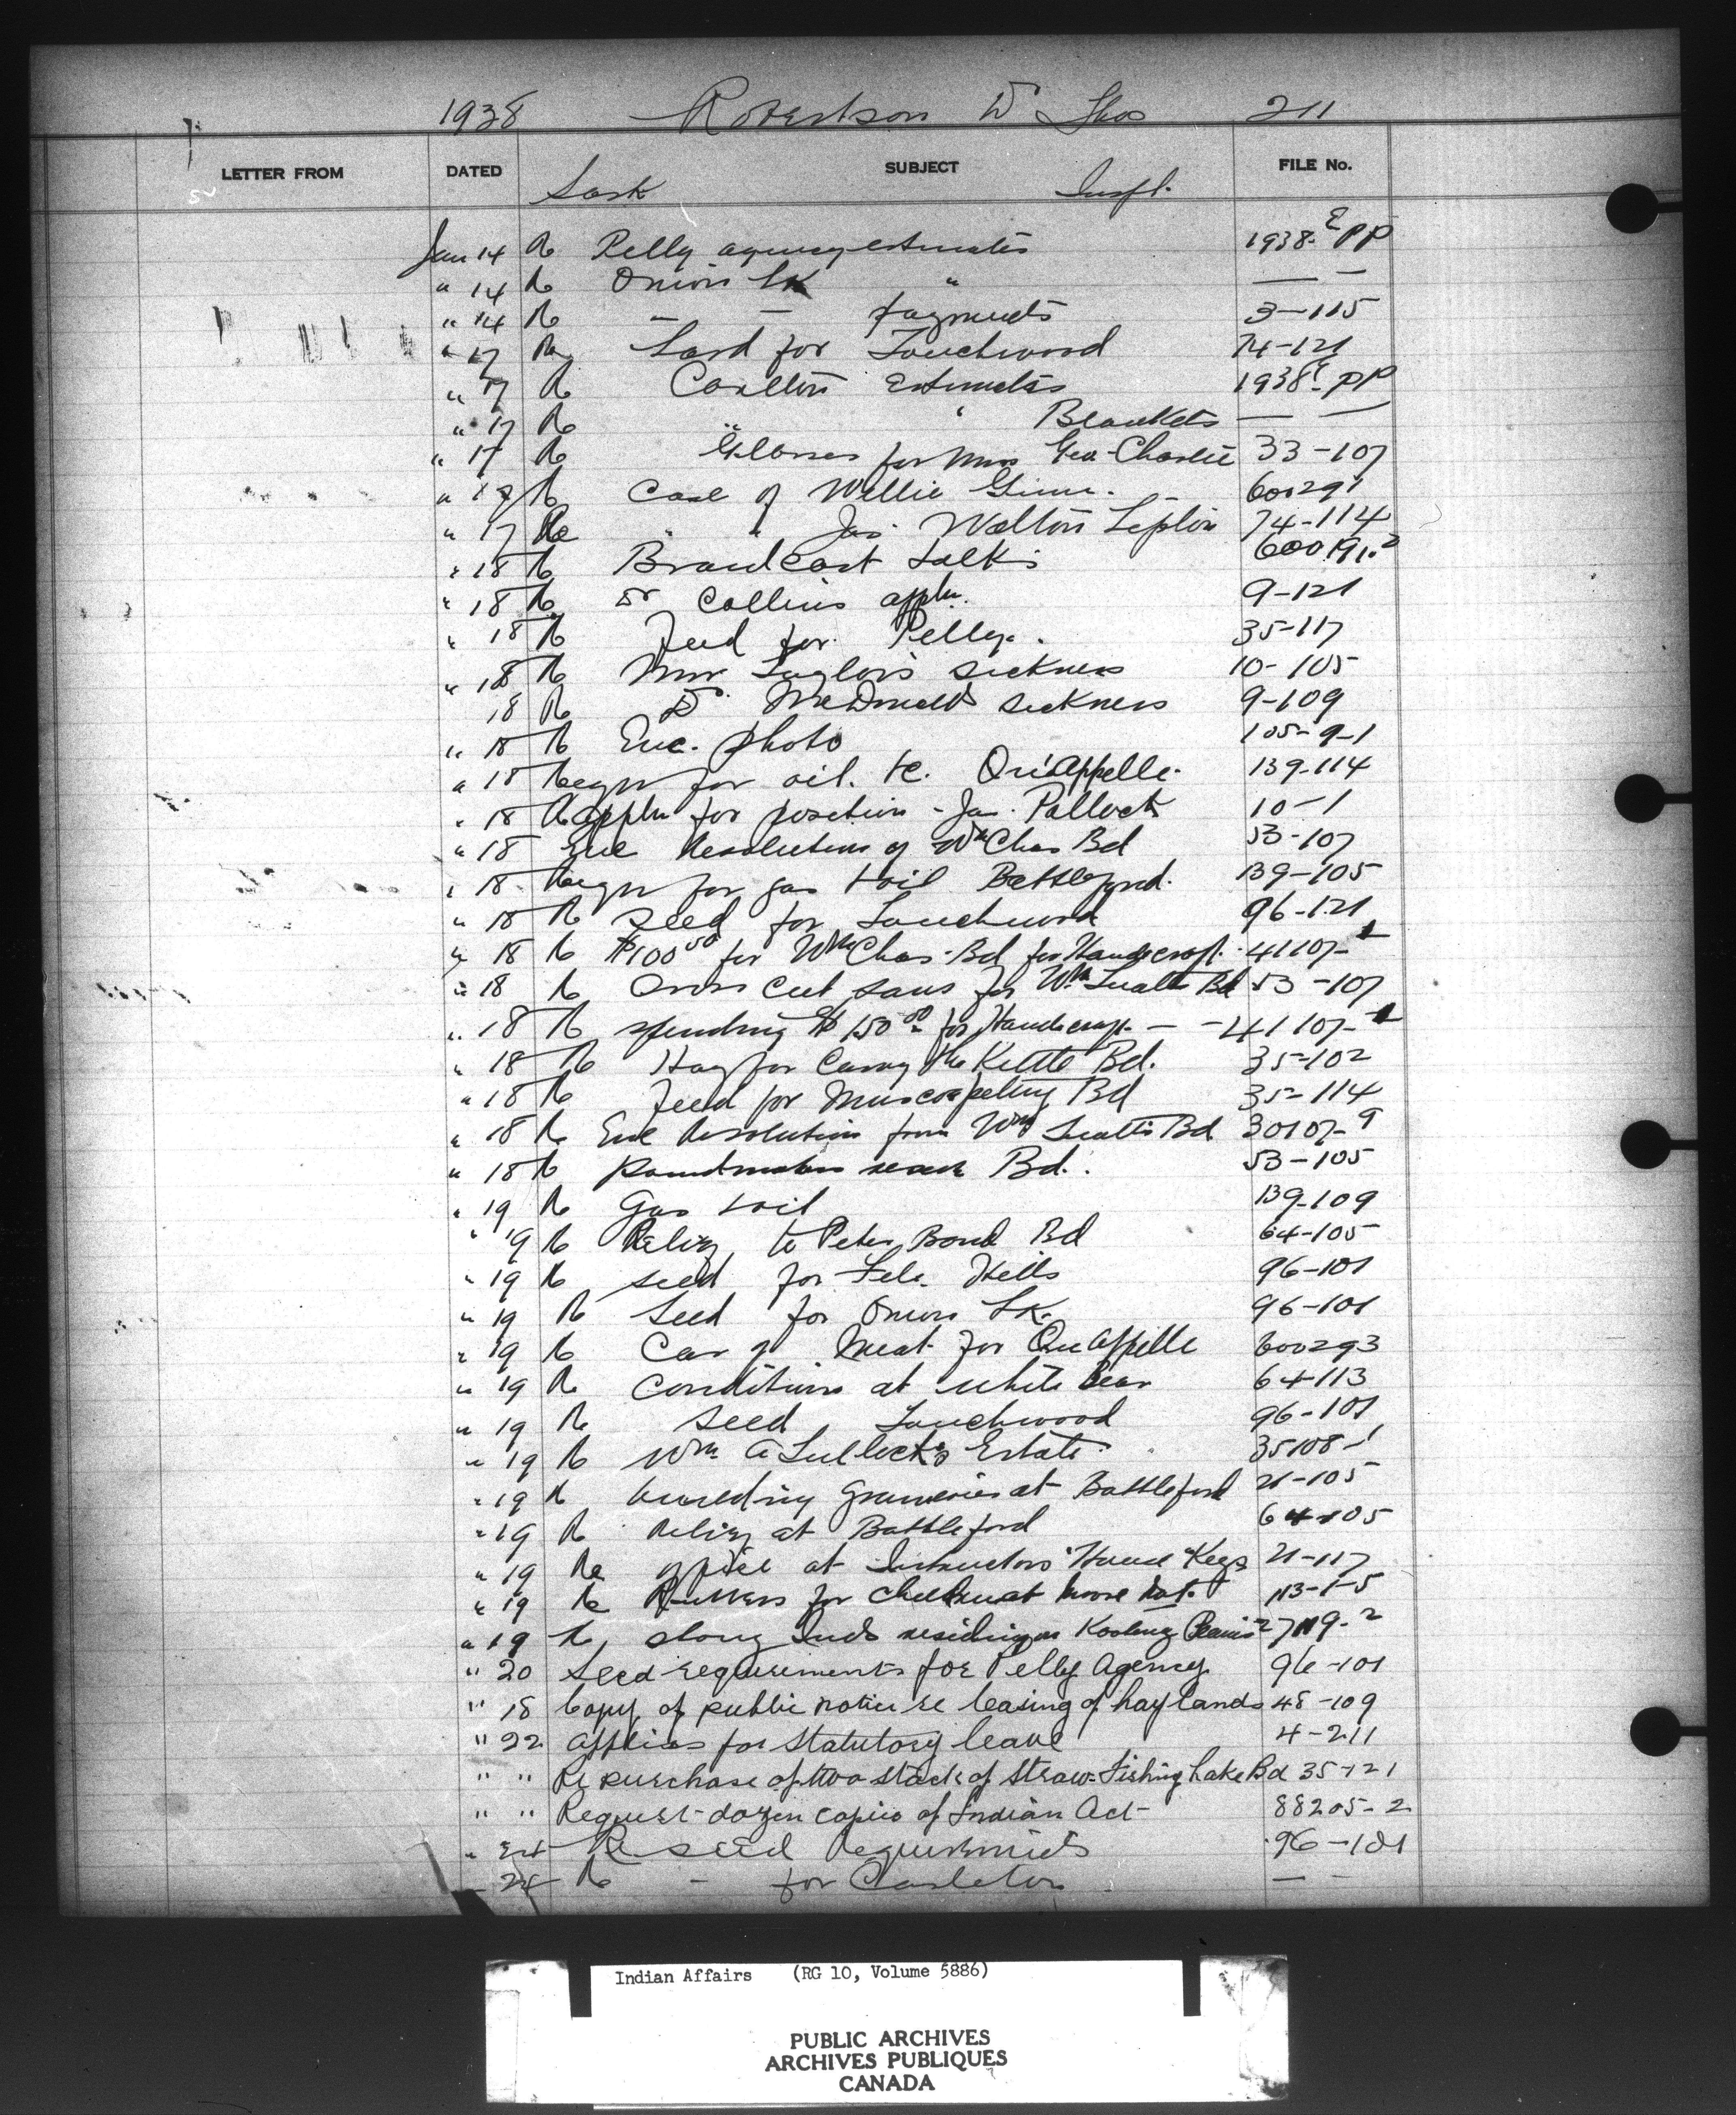 1938 Robertson Dr Thos 211
LETTER FROM DATED SUBJECT FILE No.
Sask Insp.
Jan 14 Re Pelly agency estimates 1938-E PP
" 14 Re Onion Lk " — —
" 14 Re — — payments 3-115
" 17 Re Land for Touchwood 74-121
" 17 Re Carlton Estimates 1938E- PP
" 17 Re " ' Blankets — —
" 17 Re Glasses for Mrs Geo Charlie 33-107
" 17 Re Case of Willie Ginn. - 600291
" 17 Re " " Jas. Walton 74-114
" 18 Re Broadcast talks
" 18 Re Dr Collins appln. 9-121
" 18 Re Feed for Pelly. 35-117
" 18 Re Mrs Taylors sickness 10-105
18 Re Dr. McDonald sickness 9-109
" 18 Re Enc. photo 105-9-1
" 18 Reqn for oil. &c. Qu'Appelle. 139-114
" 18 Re Appln for position - Jas. Pollock 10-1
" 18 Enc Resolution of Wm Chas Bd 53-107
" 18 Reqn for gas & oil Battleford. 139-105
" 18 Re seed for Touchwood 96-121
" 18 Re $100 50 for Wm Chas-Bd for Handicraft. 41107-
" 18 Re Cross cut saws for Wm Bd 53-107
" 18 Re spending $150 00 for Handicraft — 41107-
" 18 Re Hay for Carry the Kettle Bd. 35-102
" 18 Re Feed for Muscowpetung Bd 35-114
" 18 Re Enc Resolution from Wm Bd 30107-9
" 18 Re Poundmaker Bd. 53-105
" 19 Re Gas & oil 139-109
" 19 Re Relief to Peter Bd 64-105
" 19 Re seed for File Hills 96-101
" 19 Re Seed for Onion Lk. 96-101
" 19 Re Car of Meat for Qu Appelle 600293
" 19 Re Conditions at White Bear 64-113
" 19 Re Seed, Touchwood 96-101
" 19 Re Wm. A Estate. 35108-1
" 19 Re building Graneries at Battleford 21-105
" 19 Re Relief at Battleford 64-105
" 19 Re office at Instructors House Keys 21-117
" 19 Re for at Moose 113-1-5
" 19 Re, Stony Inds residing on Kootenay Plains
" 20 Seed requirements for Pelly Agency. 96-101
" 18 Copy of public notice re leasing of hay lands 48-109
" 22 applies for Statutory leave 4-211
" " Re purchase of two stack of Straw-Fishing Lake Bd 35-121
" " Request dozen copies of Indian Act- 88205-2
" 24 Re seed requirements 96-101
" 24 Re - for Carleton — -
Indian Affairs (RG 10, Volume 5886)
PUBLIC ARCHIVES
ARCHIVES PUBLIQUES
CANADA